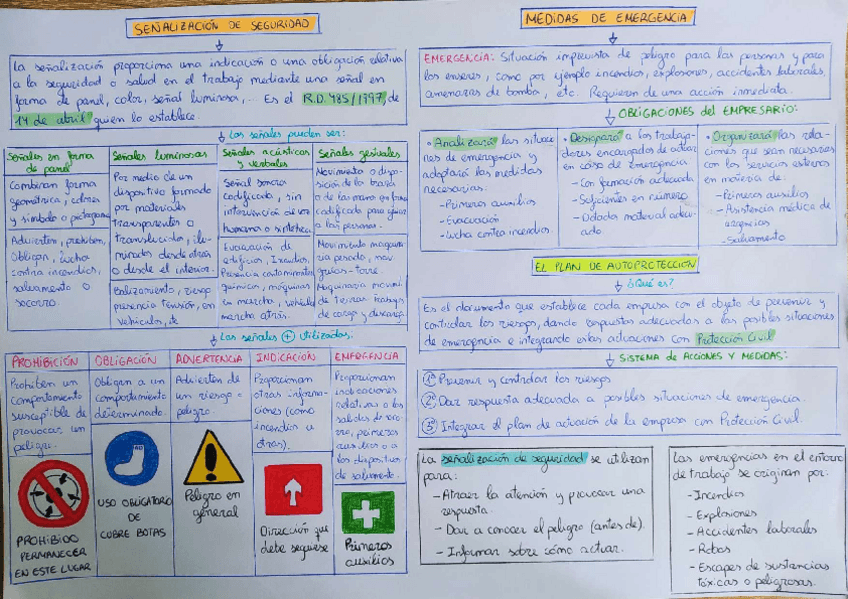 SEÑALIZACIÓN DE SEGURIDAD
La señalización proporciona una indicación o una obligación relativa
a la seguridad o salud en el trabajo mediante una señal en
forma de panel, color, señal luminosa,... Es el R.D. 485/1997, de
14 de abril quien lo establece.
Las señales pueden ser:
Señales en forma
de panel
Combinan forma
geométrica, colores
y símbolo o pictograma
Advierten, prohíben,
Obligan, lucha
contra incendios,
salvamento o
socorro.
Señales luminosas
Por medio de un
dispositivo formado
por materiales
transparentes o
translúcidos, ilu-
minados desde atrás
o desde el interior.
Balizamiento, riesgo
presencia tensión, en
vehículos, etc
Señales acústicas
y verbales
Señal sonora
codificada, sin
intervención de voz
humana o sintética
Evacuación de
edificios, Incendios,
Presencia contaminantes
químicos, máquinas
en marcha, vehículo
marcha atrás.
Señales gestuales
Movimiento o dispo-
sición de los brazos
o de las manos en forma
codificada para guiar
a las personas.
Movimiento maquina-
ria pesada, mov.
grúas-torre.
Maquinaria movimi.
de tierras, trabajos
de carga y descarga
Las señales + utilizadas.
PROHIBICIÓN
Prohíben un
comportamiento
susceptible de
provocar un
peligro.
PROHIBIDO
PERMANECER
EN ESTE LUGAR
OBLIGACIÓN
Obligan a un
comportamiento
determinado.
USO OBLIGATORIO
DE
CUBRE BOTAS
ADVERTENCIA
Advierten de
un riesgo o
peligro.
Peligro en
general
INDICACIÓN
Proporcionan
otras informa-
ciones (como
incendios u
otras).
Dirección que
debe seguirse
EMERGENCIA
Proporcionan
indicaciones
relativas a las
salidas de soco-
rro, primeros
auxilios o a
los dispositivos
de salvamento.
Primeros
auxilios
MEDIDAS DE EMERGENCIA
EMERGENCIA: Situación imprevista de peligro para las personas y para
los enseres, como por ejemplo incendios, explosiones, accidentes laborales,
amenazas de bomba, etc. Requieren de una acción inmediata.
OBLIGACIONES del EMPRESARIO:
• Analizará las situacio-
nes de emergencia y
adoptará las medidas
necesarias:
- Primeros auxilios
- Evacuación
- Lucha contra incendios.
• Designará a los trabaja-
dores encargados de actuar
en caso de Emergencia
- Con formación adecuada
- Suficientes en número
- Dotados material adecu-
ado.
• Organizará las rela-
ciones que sean necesarias
con los servicios externos
en materia de:
- Primeros auxilios
- Asistencia médica de
urgencias
- Salvamento
EL PLAN DE AUTOPROTECCIÓN
¿Qué es?
Es el documento que establece cada empresa con el objeto de prevenir y
controlar los riesgos, dando respuestas adecuadas a las posibles situaciones
de emergencia e integrando estas actuaciones con Protección Civil
SISTEMA de ACCIONES Y MEDIDAS:
1º Prevenir y controlar los riesgos
2º Dar respuesta adecuada a posibles situaciones de emergencia.
3º Integrar el plan de actuación de la empresa con Protección Civil.
La señalización de seguridad se utilizan
para:
- Atraer la atención y provocar una
respuesta.
- Dar a conocer el peligro (antes de).
- Informar sobre cómo actuar.
Las emergencias en el entorno
de trabajo se originan por:
- Incendios
- Explosiones
- Accidentes laborales
- Robos
- Escapes de sustancias
tóxicas o peligrosas.